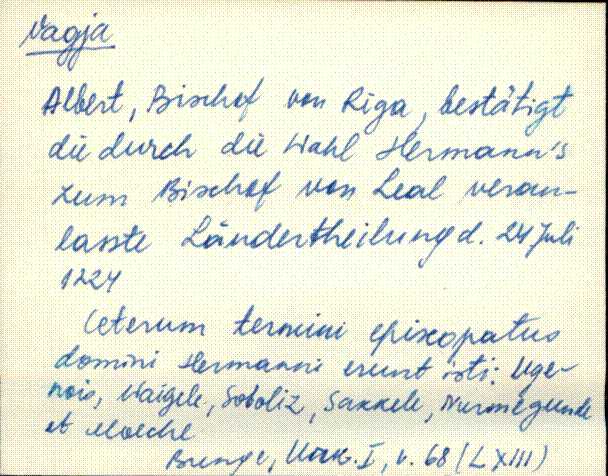 Vagja
Albert, Bischof von Riga, bestätigt
die durch die Wahl Hermann's
zum Bischof von Leal veran-
lasste Ländertheilung d. 24 Juli
1224
Ceterum termini episcopatus
domini Hermanni erunt isti: Uge-
nois, Waigele, Soboliz, Saxkele, Nurmegunde
et Moeche
Bunge, I, n. 68 (LXIII)